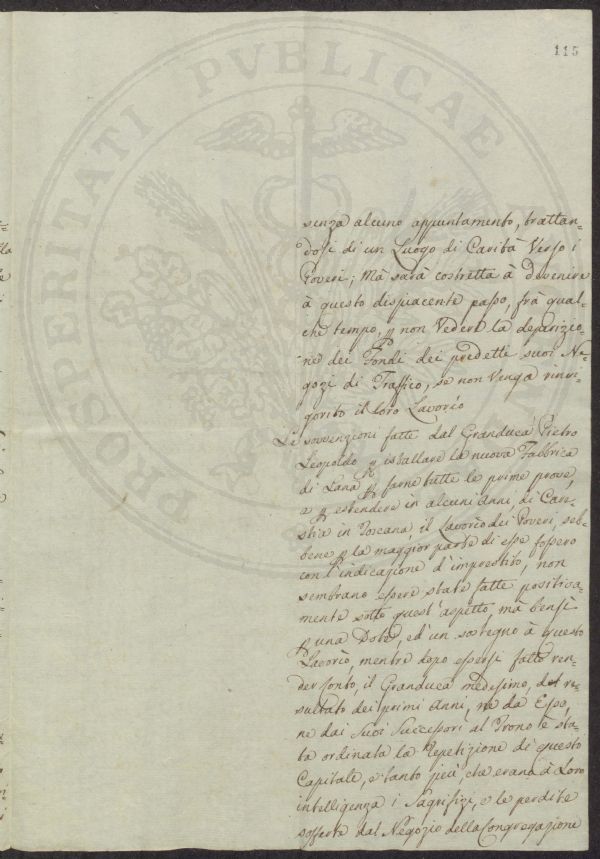 115
senza alcuno appuntamento, trattan-
dosi di un Luogo di Carità Verso i
Poveri; Mà sarà costretta à devenire
à questo dispiacente passo, frà qual-
che tempo, p non Vedere la deperizio-
ne dei Fondi dei predetti suoi Ne-
gozi di Traffico, se non Venga rinvi-
gorito il loro Lavorio
Le sovvenzioni fatte dal Granduca Pietro
Leopoldo p istallare la nuova Fabbrica
di Lana p farne tutte le prime prove,
e p estendere in alcuni Anni, di Care-
stia in Toscana, il Lavorio dei Poveri, seb-
bene p la maggior parte di esse fossero
con l'indicazione d'imprestito, non
sembrano essere state fatte positiva-
mente sotto quest'aspetto, mà bensì
p una Dote, ed un sostegno à questo
Lavorio, mentre dopo essersi fatto ren-
der conto, il Granduca medesimo, del re-
sultato dei primi Anni, ne da Esso,
ne dai Suoi Successori al Trono è sta-
ta ordinata la Repetizione di questo
Capitale, e tanto più, che erano à Loro
intelligenza i Sagrifizi, e le perdite
sofferte dal Negozio della Congregazione
PROSPERITATI PVBLICAE